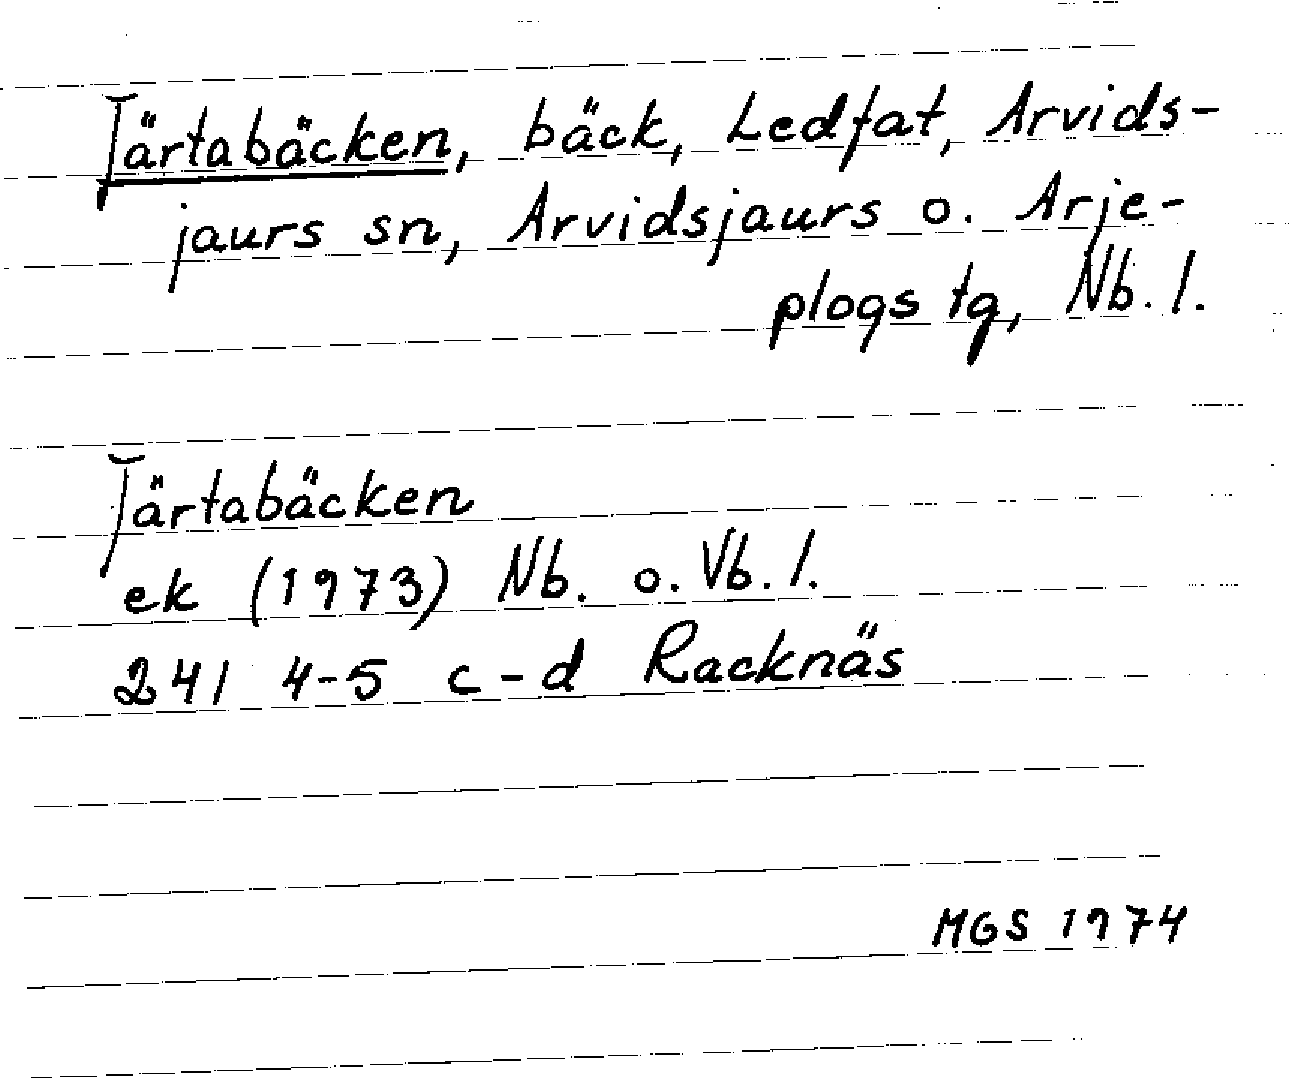 Tärtabäcken, bäck, Ledfat, Arvids-
jaurs sn, Arvidsjaurs o. Arje-
plogs tg, Nb. l.
Tärtabäcken
ek (1973) Nb. o. Vb. l.
241 4-5 c-d Racknäs
MGS 1974